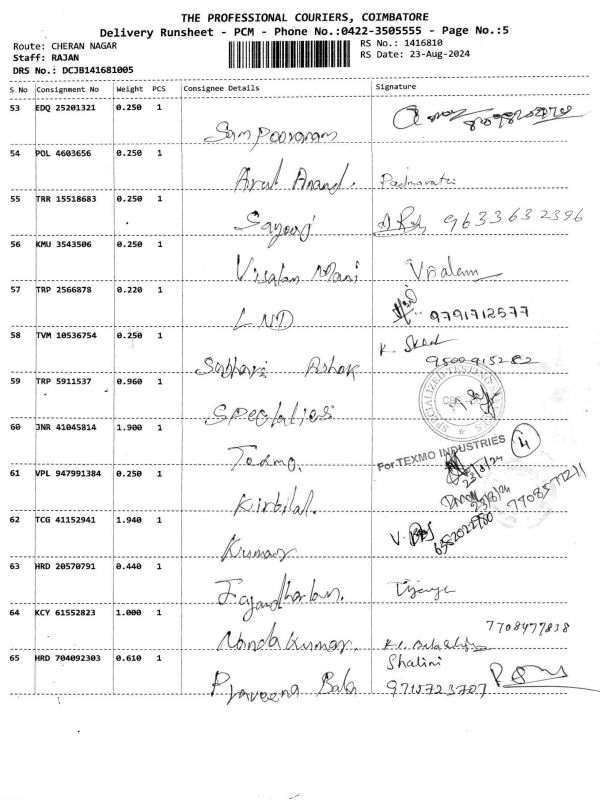 THE PROFESSIONAL COURIERS, COIMBATORE
Delivery Runsheet - PCM - Phone No.:0422-3505555 - Page No.:5
Route: CHERAN NAGAR
RS No.: 1416810
Staff: RAJAN
RS Date: 23-Aug-2024
DRS No.: DCJB141681005
S No Consignment No Weight PCS Consignee Details Signature
53 EDQ 25201321 0.250 1
Sampoornam
54 POL 4603656 0.250 1
Arul Anand. Padmavathi
55 TRR 15518683 0.250 1
Sayooj 9633632396
56 KMU 3543506 0.250 1
Visalan Mani Visalam
57 TRP 2566878 0.220 1
LND 9791712577
58 TVM 10536754 0.250 1
K.
Ashok 9500915282
59 TRP 5911537 0.960 1
Specialities
SPECIALIZED TESTING
60 JNR 41045814 1.900 1
For TEXMO INDUSTRIES 4
Texmo.
23/8/24
61 VPL 947991384 0.250 1
23/8/24
Kirbilal. 7708577211
62 TCG 41152941 1.940 1
V.
Kumar
63 HRD 20570791 0.440 1
64 KCY 61552823 1.000 1
7708477838
Nanda Kumar.
65 HRD 704092303 0.610 1
Shalini
Praveena Bala 9715723707